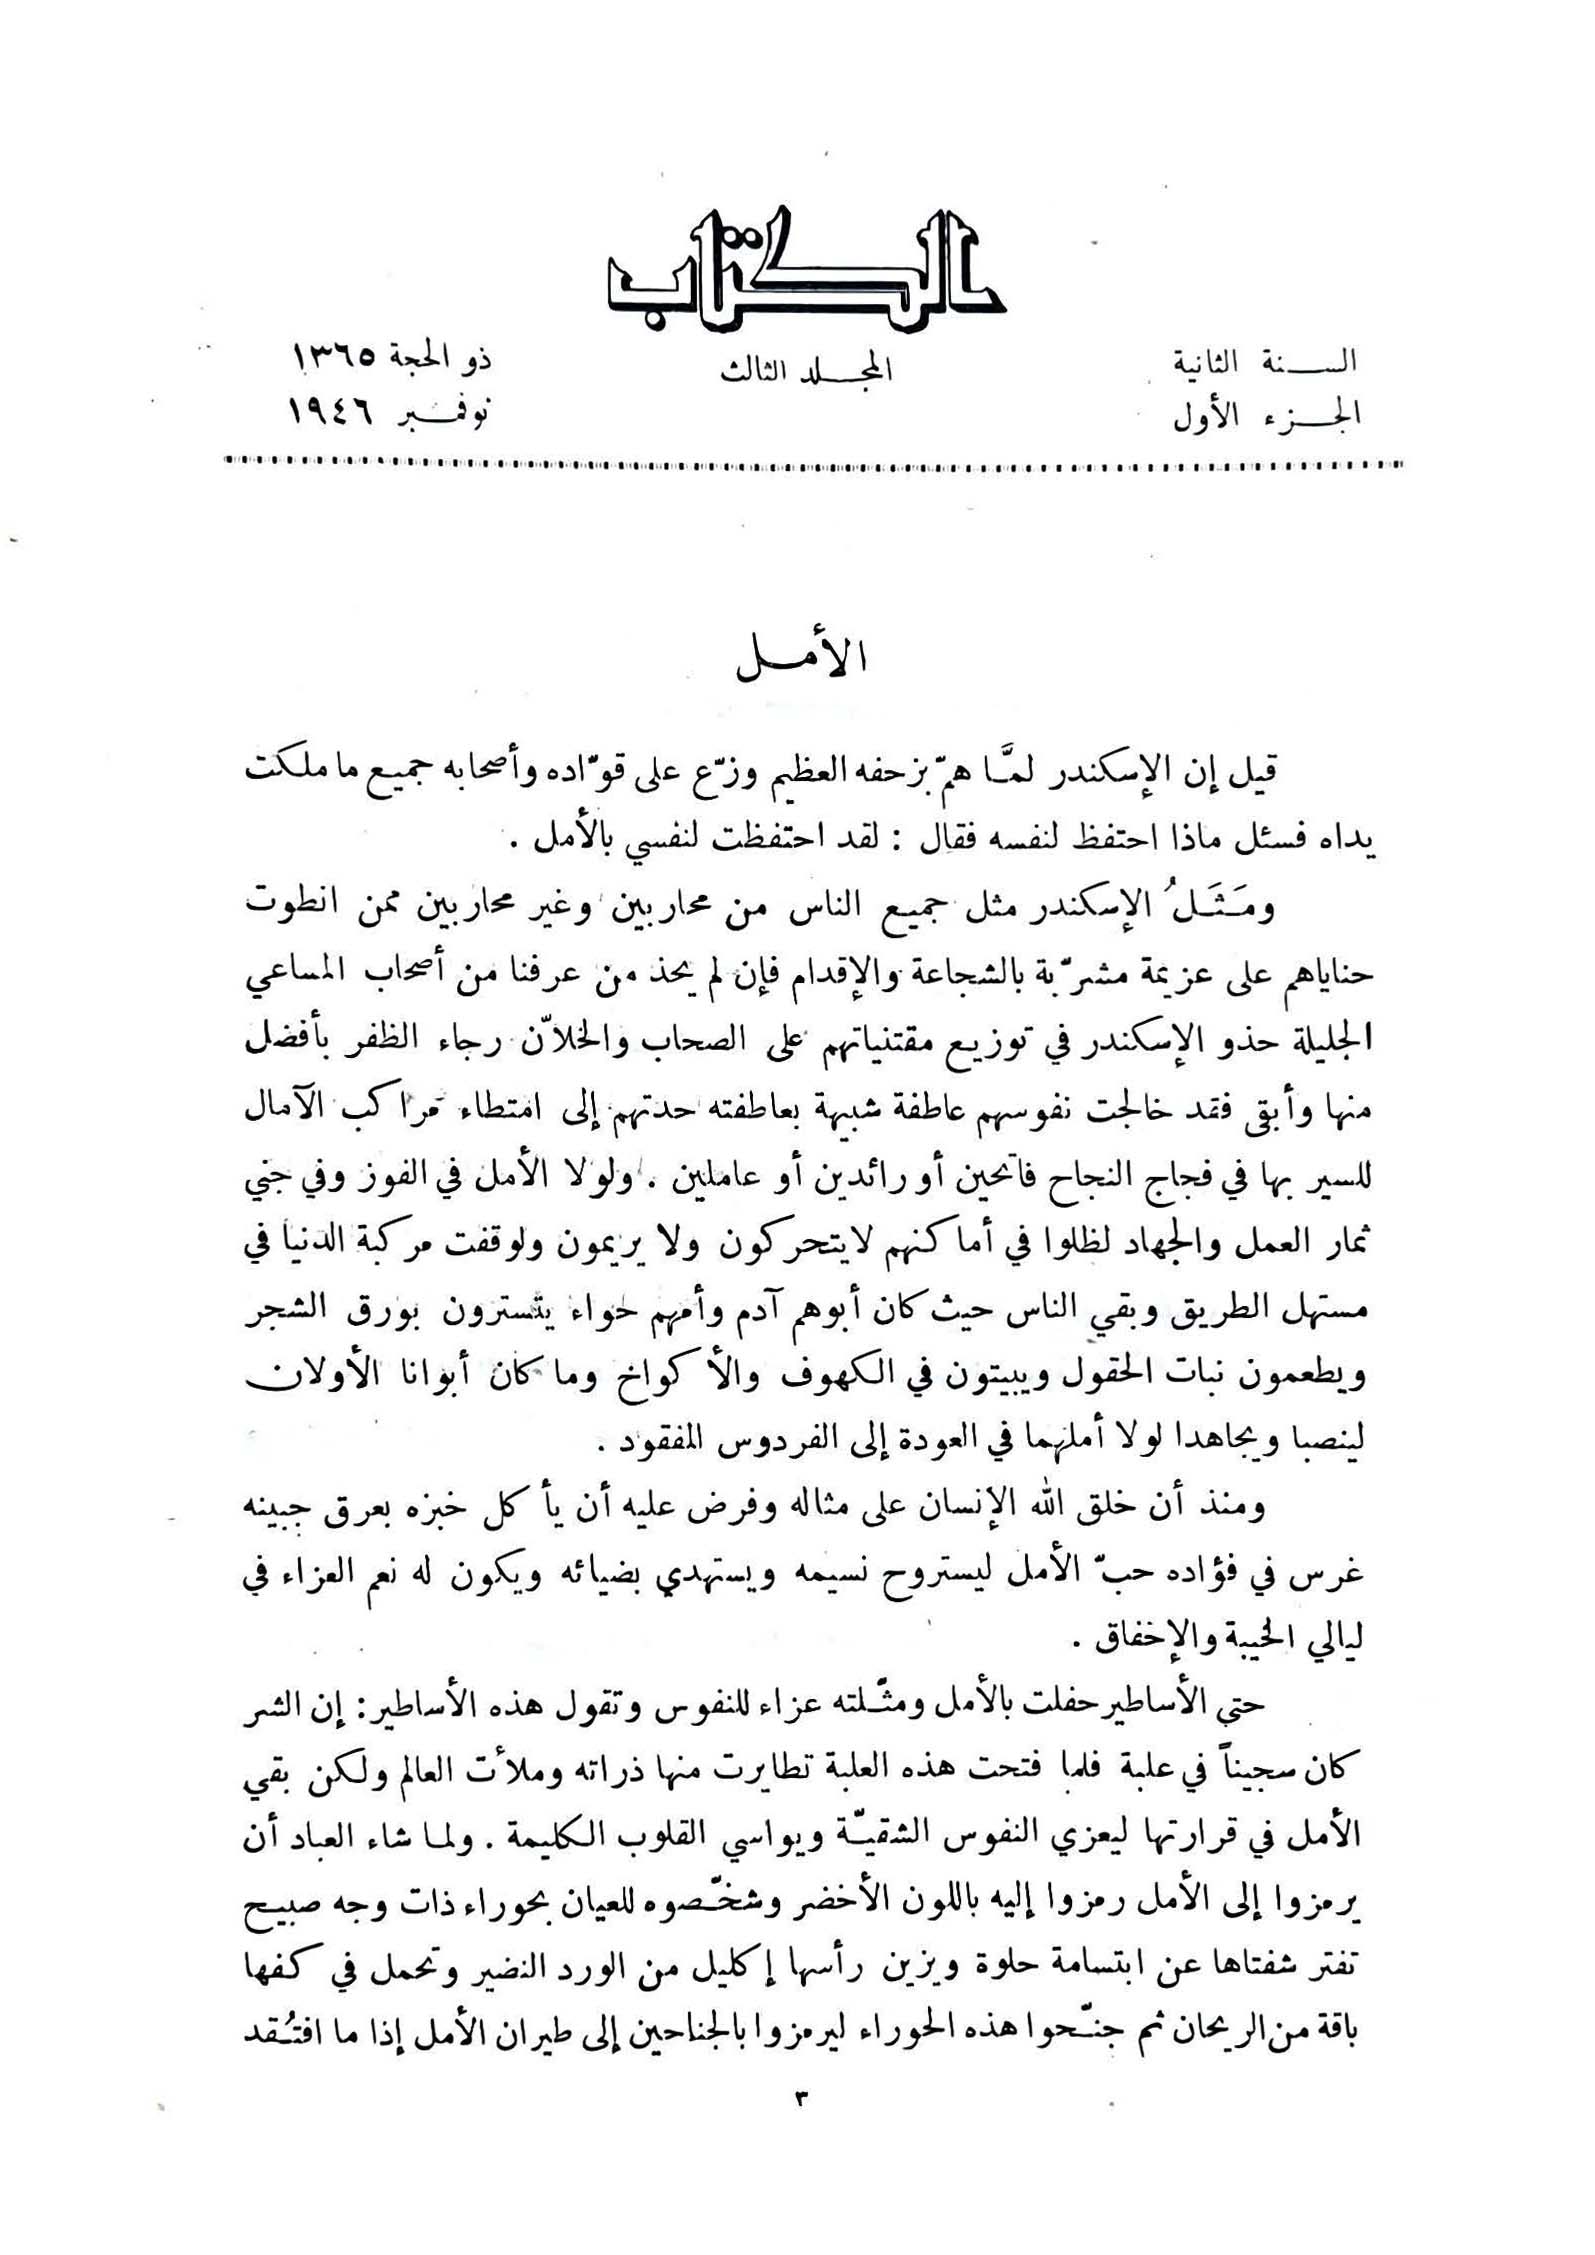 الكتاب
السنة الثانية
الجزء الأول
المجلد الثالث
ذو الحجة ١٣٦٥
نوفمبر ١٩٤٦
الأمل
قيل إن الإسكندر لمَّا همّ بزحفه العظيم وزّع على قوّاده وأصحابه جميع ما ملكت
يداه فسئل ماذا احتفظ لنفسه فقال : لقد احتفظت لنفسي بالأمل .
ومَثَلُ الإسكندر مثل جميع الناس من محاربين وغير محاربين ممن انطوت
حناياهم على عزيمة مشرّبة بالشجاعة والإقدام فإن لم يحذ من عرفنا من أصحاب المساعي
الجليلة حذو الإسكندر في توزيع مقتنياتهم على الصحاب والخلاّن رجاء الظفر بأفضل
منها وأبقى فقد خالجت نفوسهم عاطفة شبيهة بعاطفته حدتهم إلى امتطاء مراكب الآمال
للسير بها في فجاج النجاح فاتحين أو رائدين أو عاملين . ولولا الأمل في الفوز وفي جني
ثمار العمل والجهاد لظلوا في أماكنهم لايتحركون ولا يريمون ولوقفت مركبة الدنيا في
مستهل الطريق وبقي الناس حيث كان أبوهم آدم وأمهم حواء يتسترون بورق الشجر
ويطعمون نبات الحقول ويبيتون في الكهوف والأكواخ وما كان أبوانا الأولان
لينصبا ويجاهدا لولا أملهما في العودة إلى الفردوس المفقود .
ومنذ أن خلق الله الإنسان على مثاله وفرض عليه أن يأكل خبزه بعرق جبينه
غرس في فؤاده حبّ الأمل ليستروح نسيمه ويستهدي بضيائه ويكون له نعم العزاء في
ليالي الخيبة والإخفاق .
حتى الأساطير حفلت بالأمل ومثّلته عزاء للنفوس وتقول هذه الأساطير : إن الشر
كان سجيناً في علبة فلما فتحت هذه العلبة تطايرت منها ذراته وملأت العالم ولكن بقي
الأمل في قرارتها ليعزي النفوس الشقيّة ويواسي القلوب الكليمة . ولما شاء العباد أن
يرمزوا إلى الأمل رمزوا إليه باللون الأخضر وشخّصوه للعيان بحوراء ذات وجه صبيح
تفتر شفتاها عن ابتسامة حلوة ويزين رأسها إكليل من الورد النضير وتحمل في كفها
باقة من الريحان ثم جنّحوا هذه الحوراء ليرمزوا بالجناحين إلى طيران الأمل إذا ما افتُقد
٣